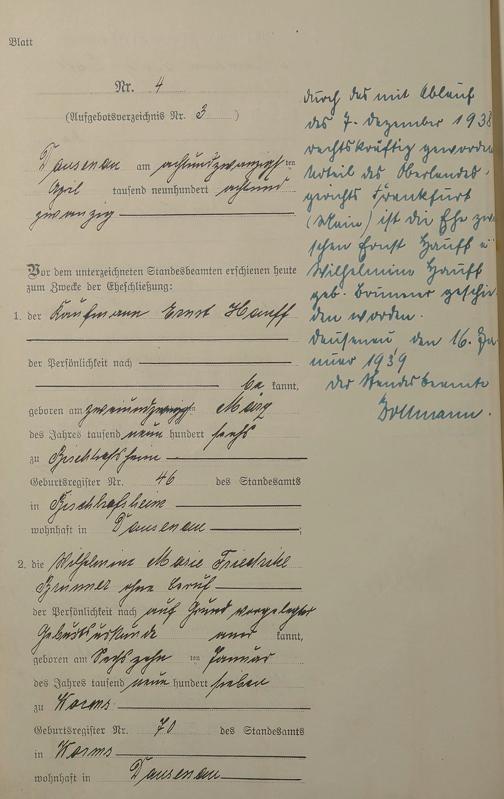 Blatt
Nr. 4
(Aufgebotsverzeichnis Nr. 3 )
Dausenau am achtundzwanzigsten
April tausend neunhundert achtund
zwanzig
Vor dem unterzeichneten Standesbeamten erschienen heute
zum Zwecke der Eheschließung:
1. der Kaufmann Ernst Hauff
der Persönlichkeit nach
be kannt,
geboren am zweiundzwanzigsten März
des Jahres tausend neun hundert sechs
zu Bischofsheim
Geburtsregister Nr. 46 des Standesamts
in Bischofsheim
wohnhaft in Dausenau ;
2. die Wilhelmine Marie Friederike
Brunner ohne Beruf
der Persönlichkeit nach auf Grund vorgelegter
Geburtsurkunde aner kannt,
geboren am Sechszehn ten Januar
des Jahres tausend neun hundert sieben
zu Worms
Geburtsregister Nr. 70 des Standesamts
in Worms
wohnhaft in Dausenau
durch das mit Ablauf
des 7. Dezember 1938
rechtskräftig geworden
Urteil des Oberlandes-
gerichts Frankfurt
(Main) ist die Ehe zwi
schen Ernst Hauff u
Wilhelmine Hauff
geb. Brunner geschie-
den worden.
Dausenau, den 16. Ja-
nuar 1939
Der Standesbeamte